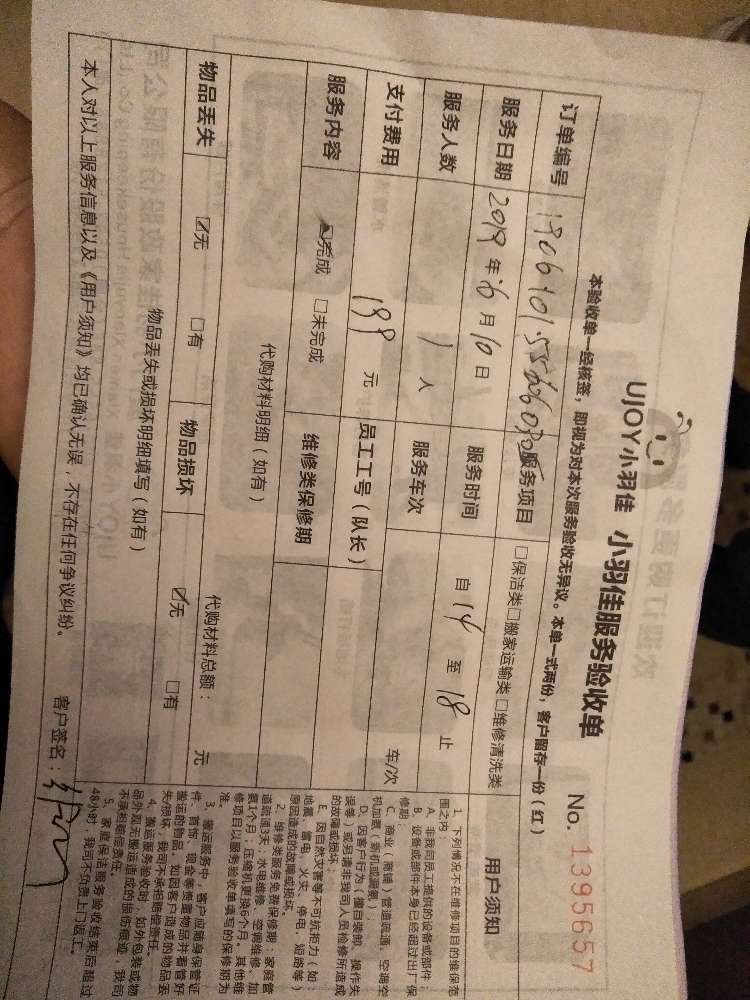 UJOY小羽佳 小羽佳服务验收单
No. 1395657
本验收单一经核签，即视为对本次服务验收无异议。本单一式两份，客户留存一份（红）
订单编号 服务项目 □保洁类□搬家运输类□维修清洗类
服务日期 2019 年 6 月 10 日 服务时间 自 14 至 18 止
服务人数 1 人 服务车次 车/次
支付费用 199 元 员工工号（队长）
服务内容 ☑完成 □未完成 维修类保修期
代购材料明细（如有） 代购材料总额： 元
物品丢失 ☑无 □有 物品损坏 ☑无 □有
物品丢失或损坏明细填写（如有）
本人对以上服务信息以及《用户须知》均已确认无误，不存在任何争议纠纷。 客户签名：
用户须知
1、下列情况不在维修项目的维保范
围之内：
A、非我司员工提供的设备或部件；
B、设备或部件本身已经超过出厂保
修期
C、商业（商铺）管道疏通、空调空
机加氨（新机或漏氨）；
D、因客户行为（擅自装卸、操作失
误等）或另请非我司人员检修所造成
的故障或损坏；
E、因自然灾害等不可抗拒力（如：
地震、雷电、火灾、停电、短路等）
原因造成的故障或损坏。
2、维修类服务免费保修期：家庭管
道疏通3天；水电维修、空调维修、加
氨1个月，压缩机更换6个月。其他维
修项目以服务验收单填写的保修期为
准。
3、搬运服务中，客户应随身保管证
件、首饰、现金等贵重物品并看管好
搬运的物品，如因客户造成的物品丢
失/损坏，我司不承担赔偿责任。
4、搬运服务验收时，如外包装或物
品外观无搬运造成的损伤痕迹，我司
不承担赔偿责任。
5、家庭保洁服务验收结束后超过
48小时，我司不负责上门返工。